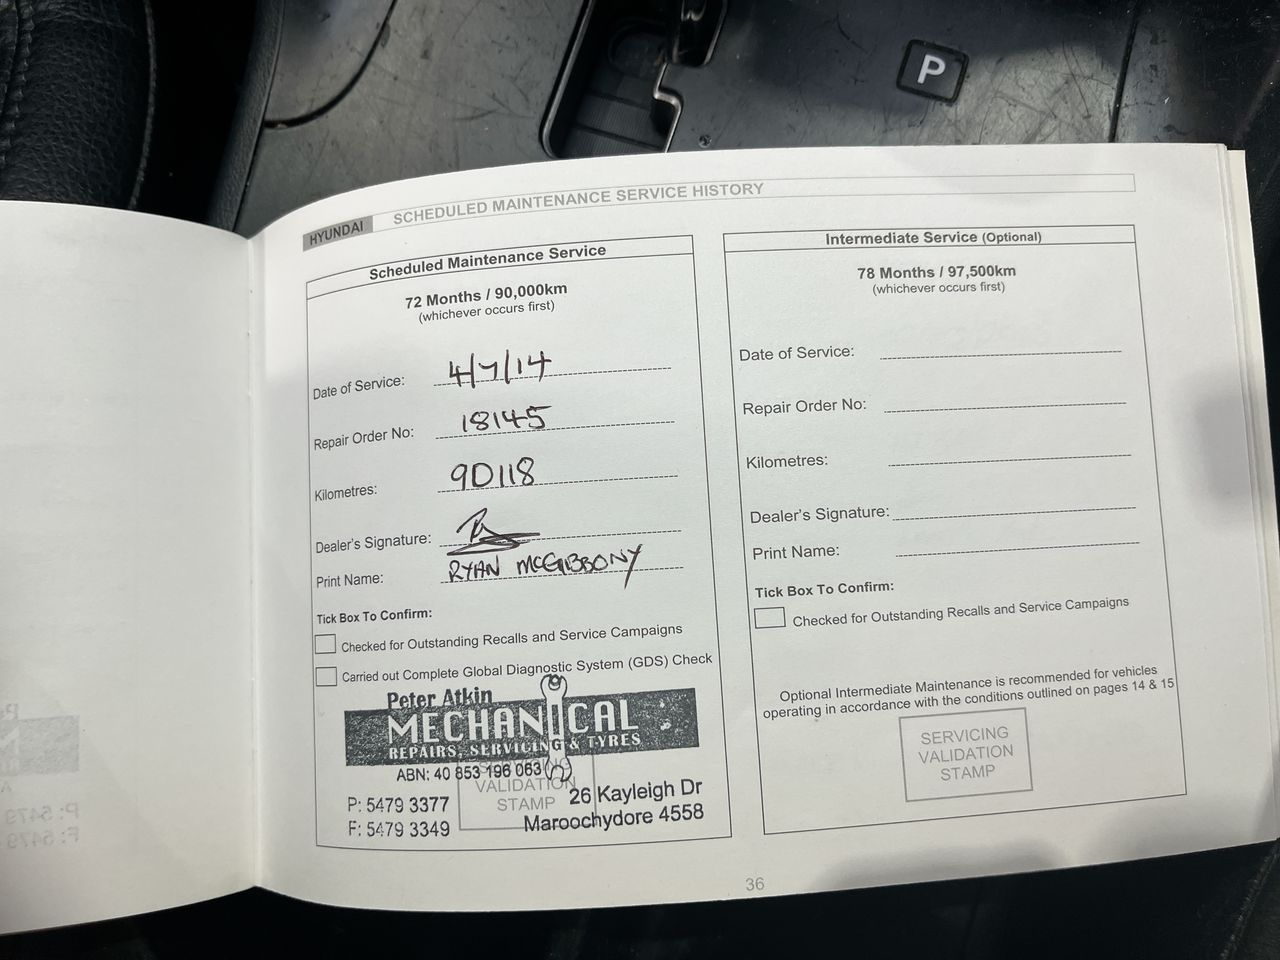 P
HYUNDAI SCHEDULED MAINTENANCE SERVICE HISTORY
Scheduled Maintenance Service
72 Months / 90,000km
(whichever occurs first)
Date of Service: 4/7/14
Repair Order No: 18145
Kilometres: 90118
Dealer's Signature:
Print Name: RYAN McGIBBONY
Tick Box To Confirm:
Checked for Outstanding Recalls and Service Campaigns
Carried out Complete Global Diagnostic System (GDS) Check
Peter Atkin
MECHANICAL
REPAIRS, SERVICING & TYRES
ABN: 40 853 196 063
SERVICING
VALIDATION
STAMP
P: 5479 3377
F: 5479 3349
26 Kayleigh Dr
Maroochydore 4558
Intermediate Service (Optional)
78 Months / 97,500km
(whichever occurs first)
Date of Service:
Repair Order No:
Kilometres:
Dealer's Signature:
Print Name:
Tick Box To Confirm:
Checked for Outstanding Recalls and Service Campaigns
Optional Intermediate Maintenance is recommended for vehicles
operating in accordance with the conditions outlined on pages 14 & 15
SERVICING
VALIDATION
STAMP
36